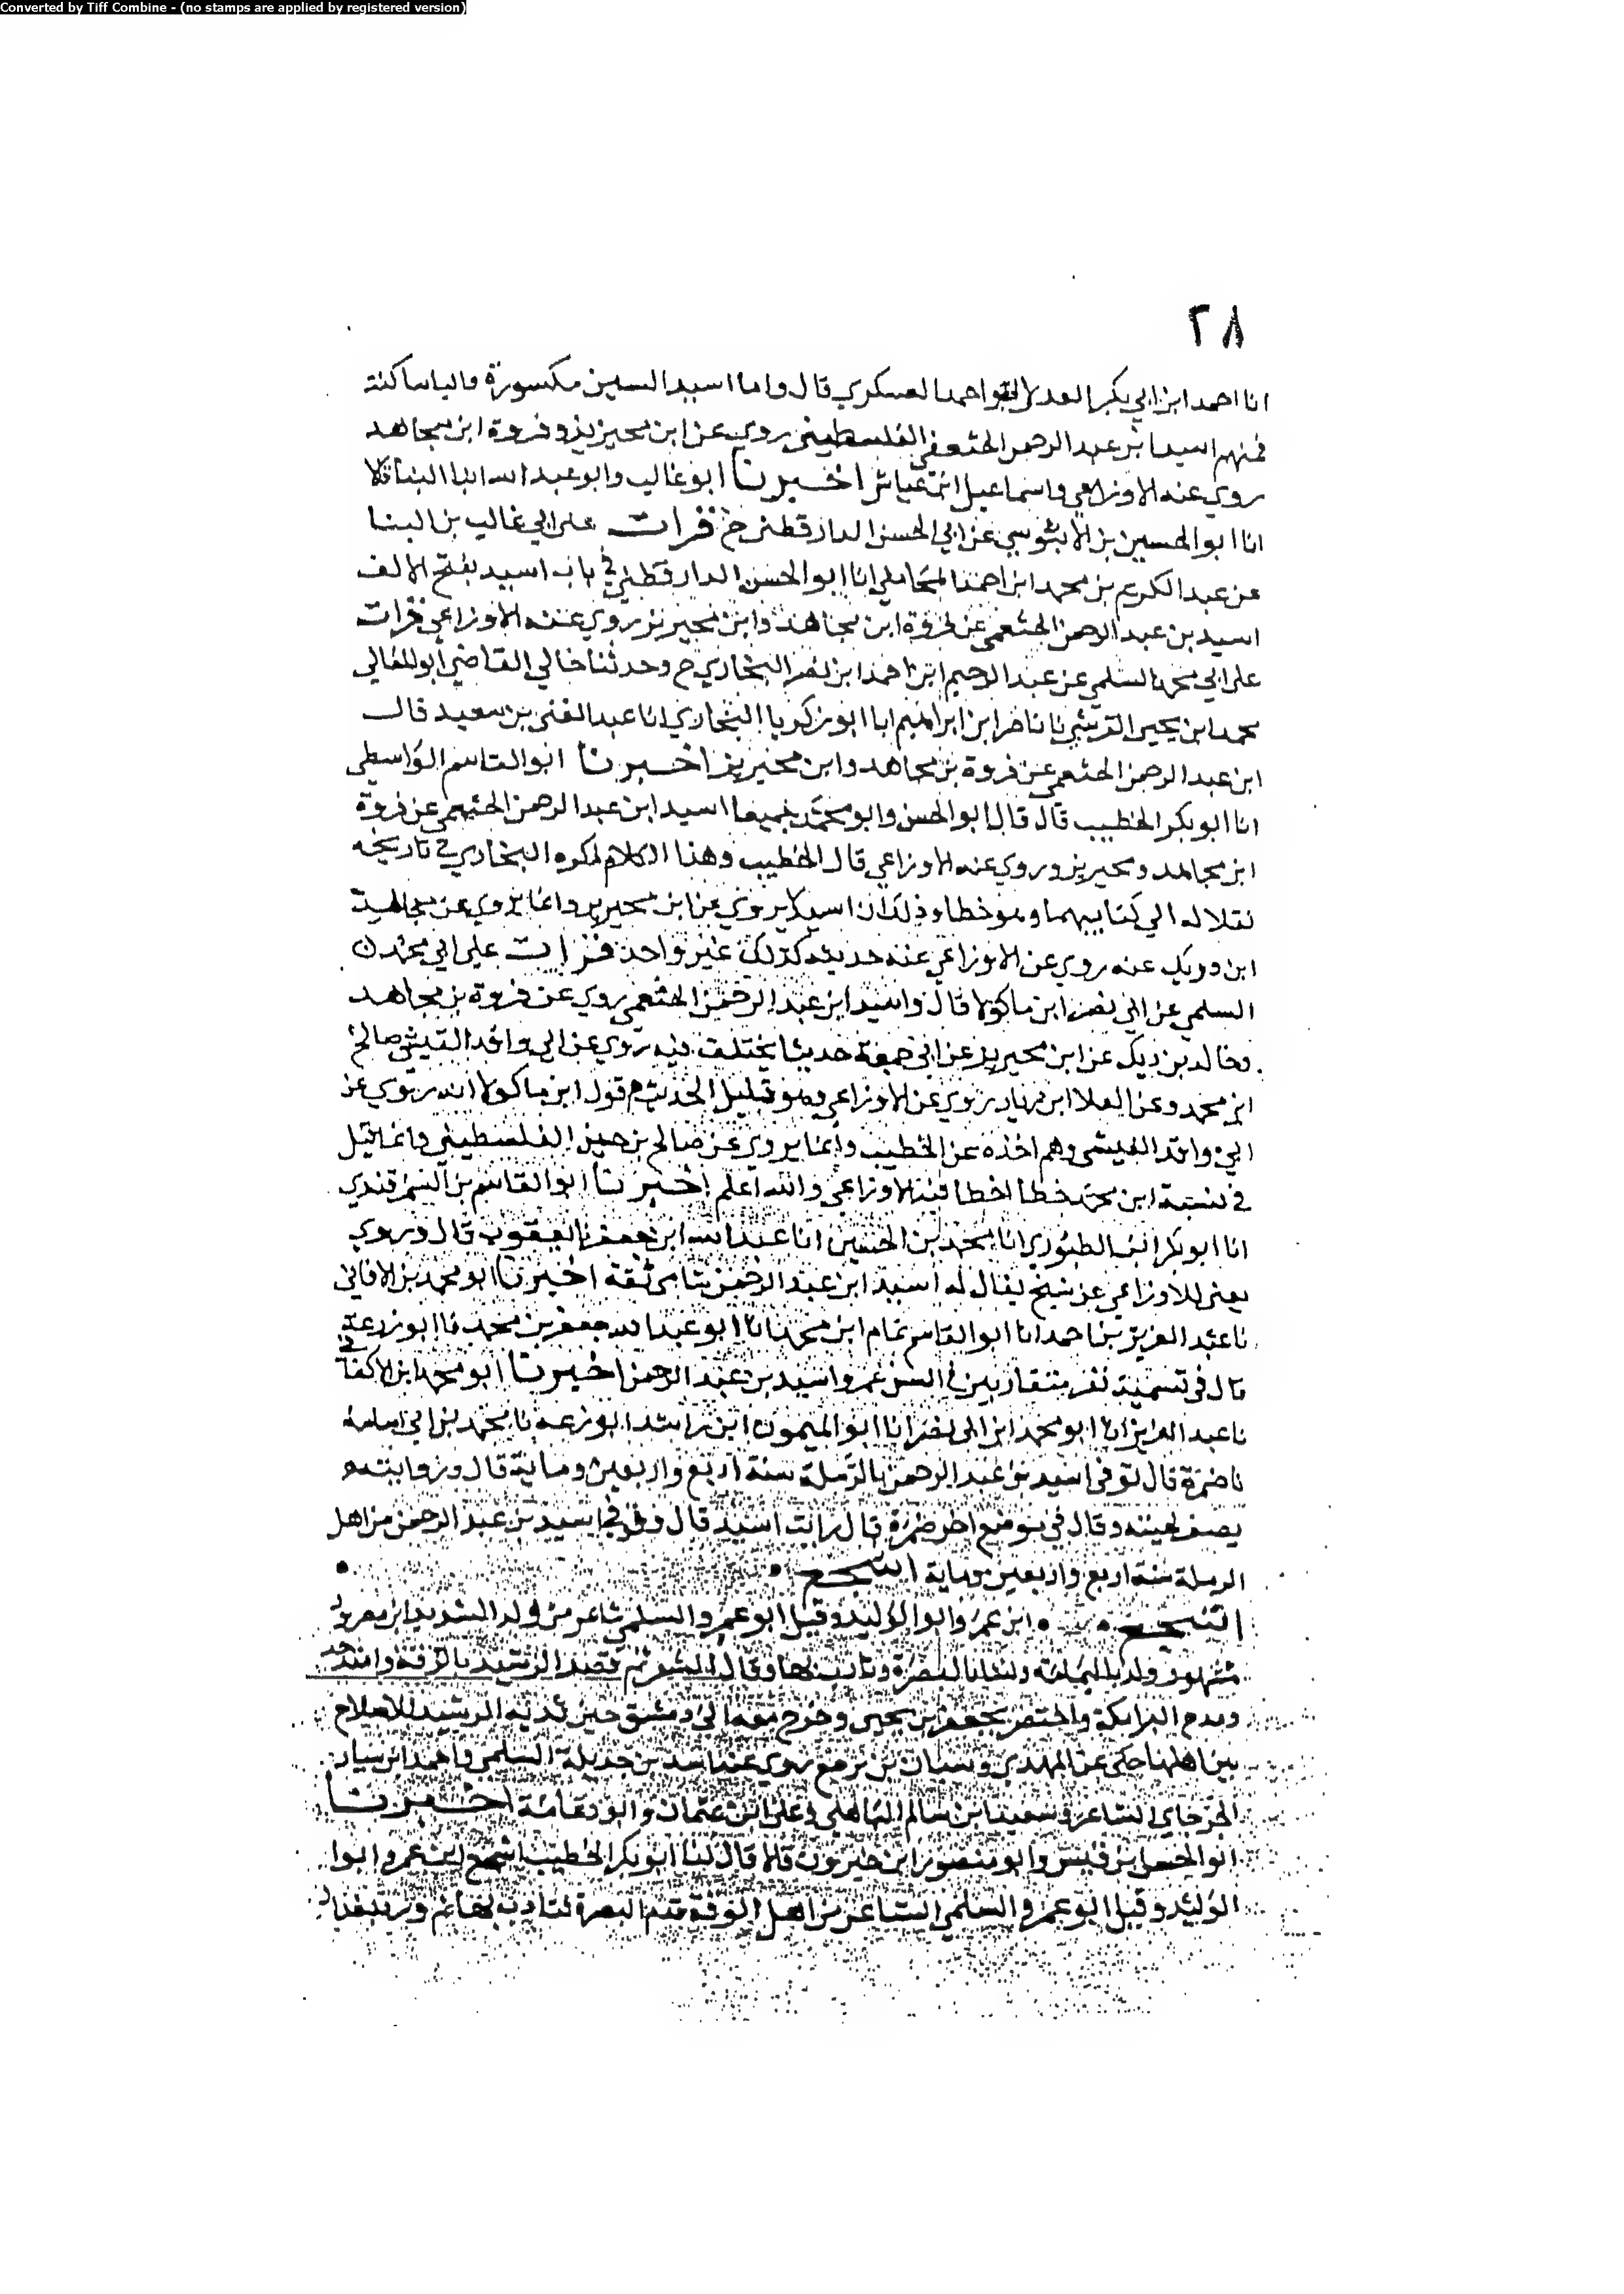 Converted by Tiff Combine - (no stamps are applied by registered version)
٢٨
انا احمد ابن ابي بكر العدل احمد العسكري قال واما اسيد السين مكسورة والياساكنة
فمنهم اسيد ابن عبد الرحمن الخثعمي الفلسطيني روي عن ابن محيريز وفروة ابن مجاهد
روي عنه الاوزاعي واسماعيل ابن عياش اخبرنا ابو غالب وابو عبد الله ابنا البنا قالا
انا ابو الحسين بن الابنوسي عن ابي الحسن الدارقطني ح وقرات على ابي غالب بن البنا
عن عبد الكريم بن محمد ابن احمد المحاملي انا ابو الحسن الدارقطني في باب اسيد بفتح الالف
اسيد بن عبد الرحمن الخثعمي عن فروة ابن مجاهد وابن محيريز روي عنه الاوزاعي قرات
على ابي محمد السلمي عن عبد الرحيم ابن احمد ابن نصر البخاري ح وحدثنا خالي القاضي ابو المعالي
محمد ابن يحيى القرشي نا ناصر ابن ابراهيم ابا ابو زكريا البخاري انا عبد الغني بن سعيد قال
ابن عبد الرحمن الخثعمي عن فروة بن مجاهد وابن محيريز اخبرنا ابو القاسم الواسطي
انا ابو بكر الخطيب قال قال ابو الحسن وابو محمد جميعا اسيد ابن عبد الرحمن الخثعمي عن فروة
ابن مجاهد ومحيريز وروي عنه الاوزاعي قال الخطيب وهذا الكلام ذكره البخاري في تاريخه
نقلاه الي كتابيهما وهو خطا وذلك ان اسيد لا يروي عن ابن محيريز وانما يروي عن
ابن دريك عنه روي عن الاوزاعي عنه حديثه كذلك غير واحد قرات على ابي محمد بن
السلمي عن ابي نصر ابن ماكولا قال واسيد ابن عبد الرحمن الخثعمي روي عن فروة بن مجاهد
وخالد بن ديك عن ابن محيريز عن ابي جمعة حديثا يختلف فيه روي عن ابي واقد الليثي صالح
ابن محمد وعن العلا ابن زياد روي عن الاوزاعي وهو قليل الحديث قول ابن ماكولا انه روي عن
ابي واقد الليثي وهم اخذه عن الخطيب وانما يروي عن صالح بن جبير الفلسطيني وانما قيل
في نسبة ابن محمد خطا اخطا فيه الاوزاعي والله اعلم اخبرنا ابو القاسم بن السمرقندي
انا ابو بكر ابن الطبري انا محمد بن الحسين انا عبد الله ابن جعفر نا يعقوب قال وروي
يعني للاوزاعي عن شيخ يقال له اسيد ابن عبد الرحمن شامي ثقة اخبرنا ابو محمد بن الاكفاني
نا عبد العزيز بن احمد انا ابو القاسم تمام ابن محمد انا ابو عبد الله جعفر بن محمد نا ابو زرعة
قال في تسمية نفر متقاربين في السن عمرو اسيد بن عبد الرحمن اخبرنا ابو محمد ابن الاكفاني
نا عبد العزيز انا ابو محمد ابن ابي نصر انا ابو الميمون ابن راشد ابو زرعه نا محمد بن ابي اسامة
نا ضمرة قال توفي اسيد بن عبد الرحمن بالرملة سنة اربع واربعين وماية قال ورايته
يصفر لحيته وقال في موضع اخر ضمرة قال رايت اسيد قال وتوفي اسيد بن عبد الرحمن من اهل
الرملة سنة اربع واربعين وماية اشجع
اشجع ابن عمرو ابو الوليد وقيل ابو عمرو السلمي شاعر من ولد الشريد ابن مطرود
مشهور ولد باليمامة ونشا بالبصرة وتادب بها وقال الشعر ثم قصد الرشيد بالرقة وامتدحه
ومدح البرامكة واختص بجعفر بن يحيى وخرج معه الي دمشق حين ندبه الرشيد للاصلاح
بين اهلها حكى عن المهدي روي عنه اسد بن جديلة السلمي واحمد ابن سيار
الجرجاني الشاعر وسعيد ابن سالم الباهلي وعلي ابن عثمان وابو دعامة اخبرنا
ابو الحسن ابن قبيس وابو منصور ابن خيرون قالا قال لنا ابو بكر الخطيب اشجع ابن عمرو ابوا
الوليد وقيل ابو عمرو السلمي الشاعر من اهل الرقة قدم البصرة فتادب بها ثم ورد بغداد